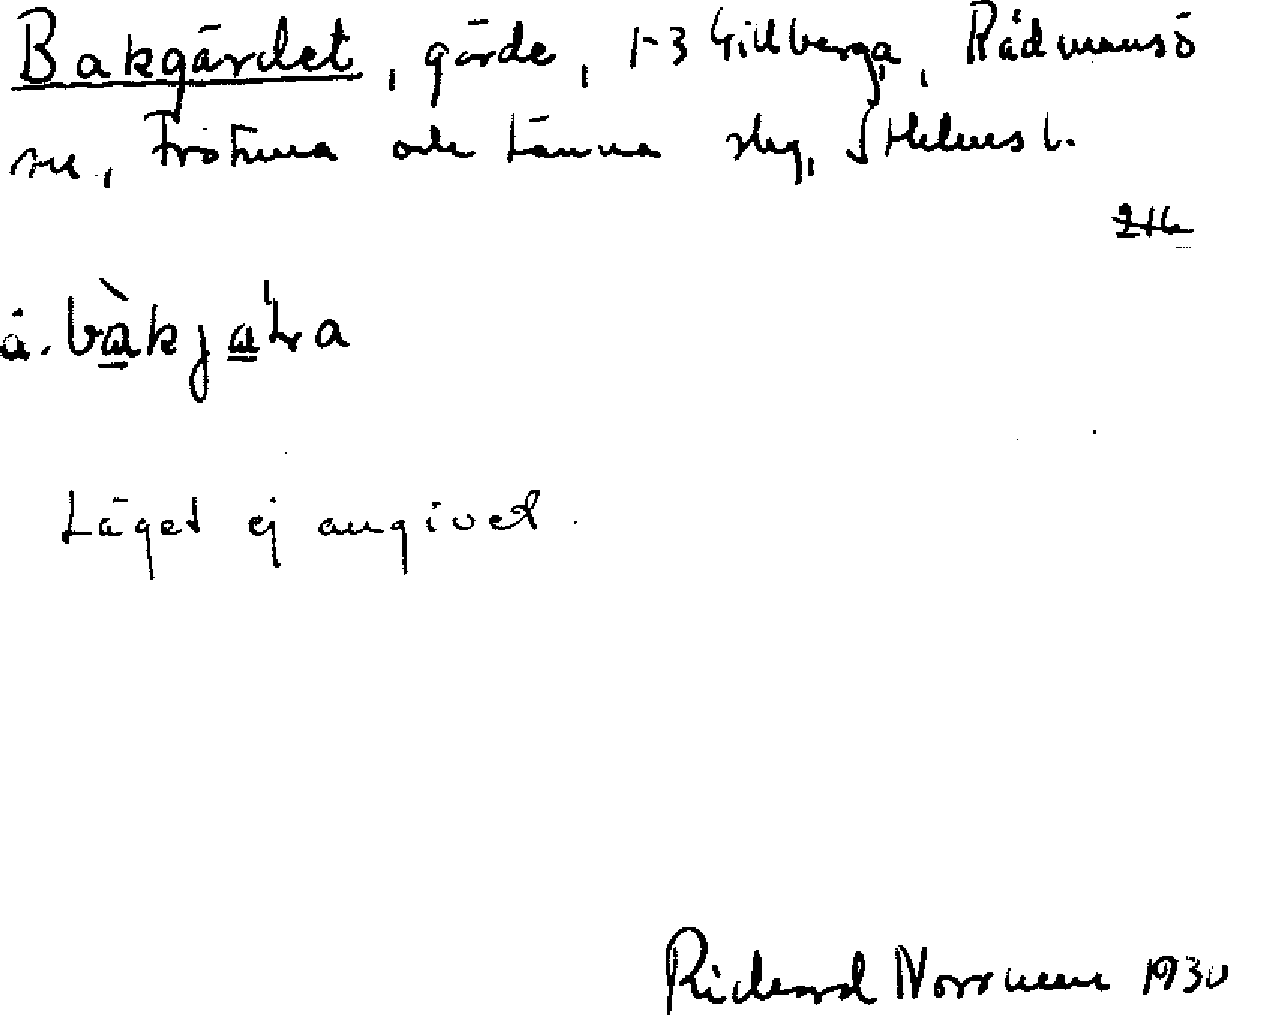 Bakgärdet, gärde, 1-3 Gillberga, Rådmansö
sn, Frötuna och Länna slg, Sthlms l.
216
å. bàkjạ'ra
Läget ej angivet.
Richard Norrman 1930